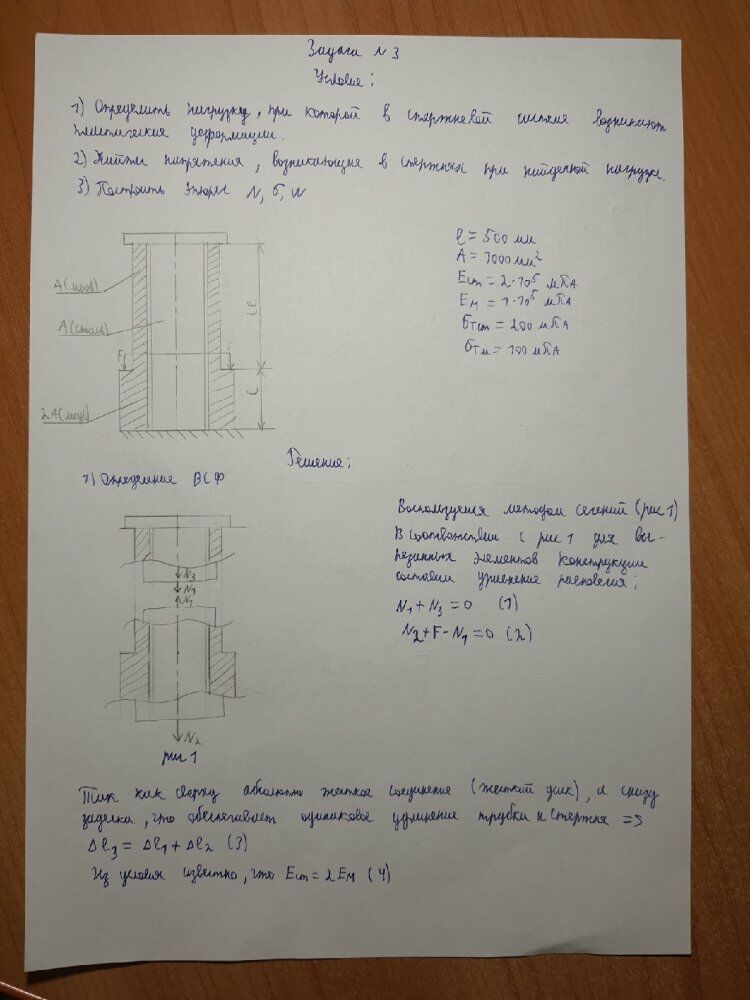 Задача N 3
Условие:
1) Определить нагрузку, при которой в стержневой системе возникают
пластические деформации.
2) Найти напряжения, возникающие в стержнях при найденной нагрузке.
3) Построить эпюры N, σ, W
A(медь)
A(сталь)
2A(медь)
F
F
2ℓ
ℓ
ℓ = 500 мм
A = 1000 мм²
Eст = 2·10⁵ мПа
Eм = 1·10⁵ мПа
σТст = 200 мПа
σТм = 100 мПа
Решение:
1) Определение ВСФ
Воспользуемся методом сечений (рис 1)
В соответствии с рис 1 для вы-
резанных элементов конструкции
составим уравнение равновесия:
N₁ + N₃ = 0 (1)
N₂ + F - N₁ = 0 (2)
N₃
N₁
N₁
N₂
рис 1
Так как сверху абсолютно жесткое соединение (жесткий диск), а снизу
заделка, что обеспечивает одинаковое удлинение трубки и стержня =>
Δℓ₃ = Δℓ₁ + Δℓ₂ (3)
Из условия известно, что Eст = 2 Eм (4)